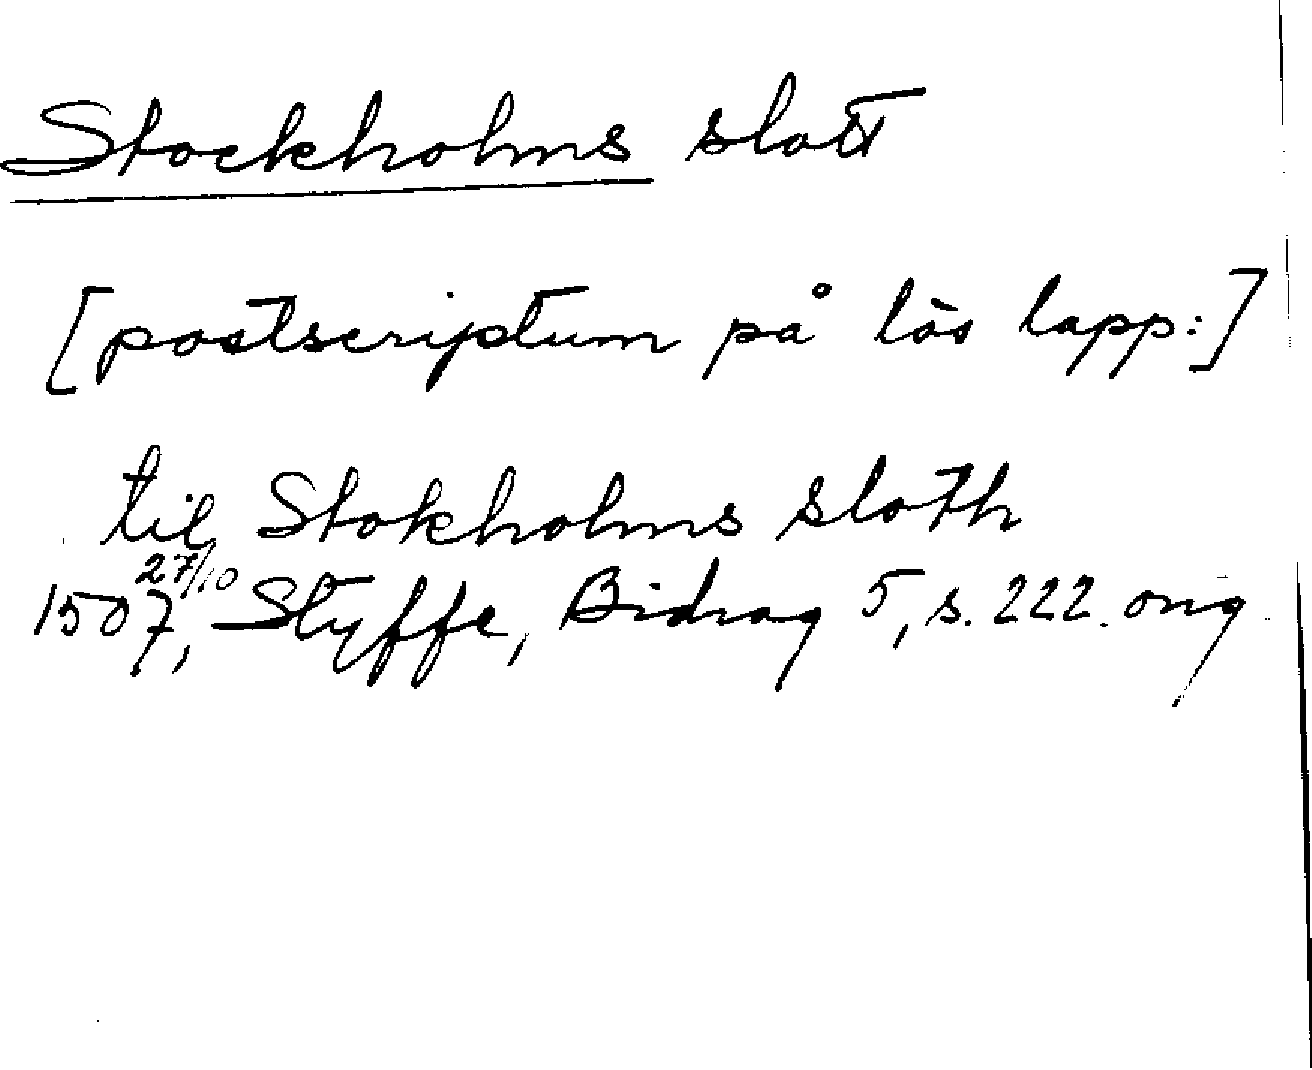 Stockholms slott
[postscriptum på lös lapp:]
til Stokholms sloth
1507 27/10, Styffe, Bidrag 5, s. 222. orig